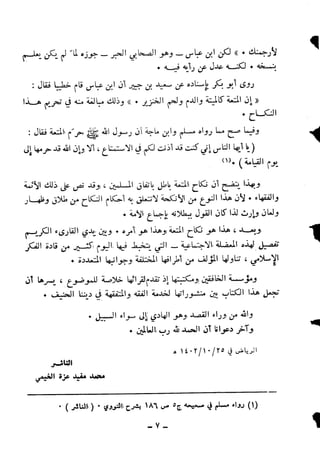 لأرجمنك » لكن ابن عباس – وهو الصحابي الحبر – جوزه لما لم يكن يعلم
بنسخه • لكنه عدل عن رأيه فيه •
روى أبو بكر بإسناده عن سعيد بن جبير أن ابن عباس قام خطيبا فقال :
« إن المتعة كالميتة والدم ولحم الخنزير » وذلك مبالغة منه في تحريم هذا
النكاح •
وفيما صح مما رواه مسلم وابن ماجة أن رسول الله ﷺ حرم المتعة فقال :
( يا أيها الناس إني كنت قد أذنت لكم في الاستمتاع ، ألا وإن الله قد حرمها إلى
يوم القيامة ) • (١)
ولهذا يتضح أن نكاح المتعة باطل باتفاق المسلمين ، وقد نص على ذلك الأئمة
والفقهاء • لأن هذا النوع من الأنكحة لا تتعلق به أحكام النكاح من طلاق وإرث
ولعان وظهار وإرث لذا كان القول ببطلانه باجماع الأمة •
وبعد ، هذا هو نكاح المتعة وهذا هو أمره • وبين يدي القارىء الكريم
تفصيل لهذه المسألة الاجتماعية – التي يتخبط فيها اليوم كثير من قادة الفكر
الإسلامي ، وتتناول المسألة من أطرافها المختلفة وجوانبها المتعددة •
ومؤسسة الخافقين ومكتبتها إذ تقدم لقرائها خلاصة الموضوع ، يسرها أن
تجعل هذا الكتاب بين منشوراتها لخدمة الفقه والمتفقهين في ديننا الحنيف •
والله من وراء القصد وهو الهادي إلى سواء السبيل •
وآخر دعوانا أن الحمد لله رب العالمين •
الرياض في ٢٥/١٠/١٤٠٢ هـ
الناشر
محمد مفيد عزة الخيمي
(١) رواه مسلم في صحيحه ج٥ ص ١٨٦ بشرح النووي • ( الناشر ) •
– ٧ –